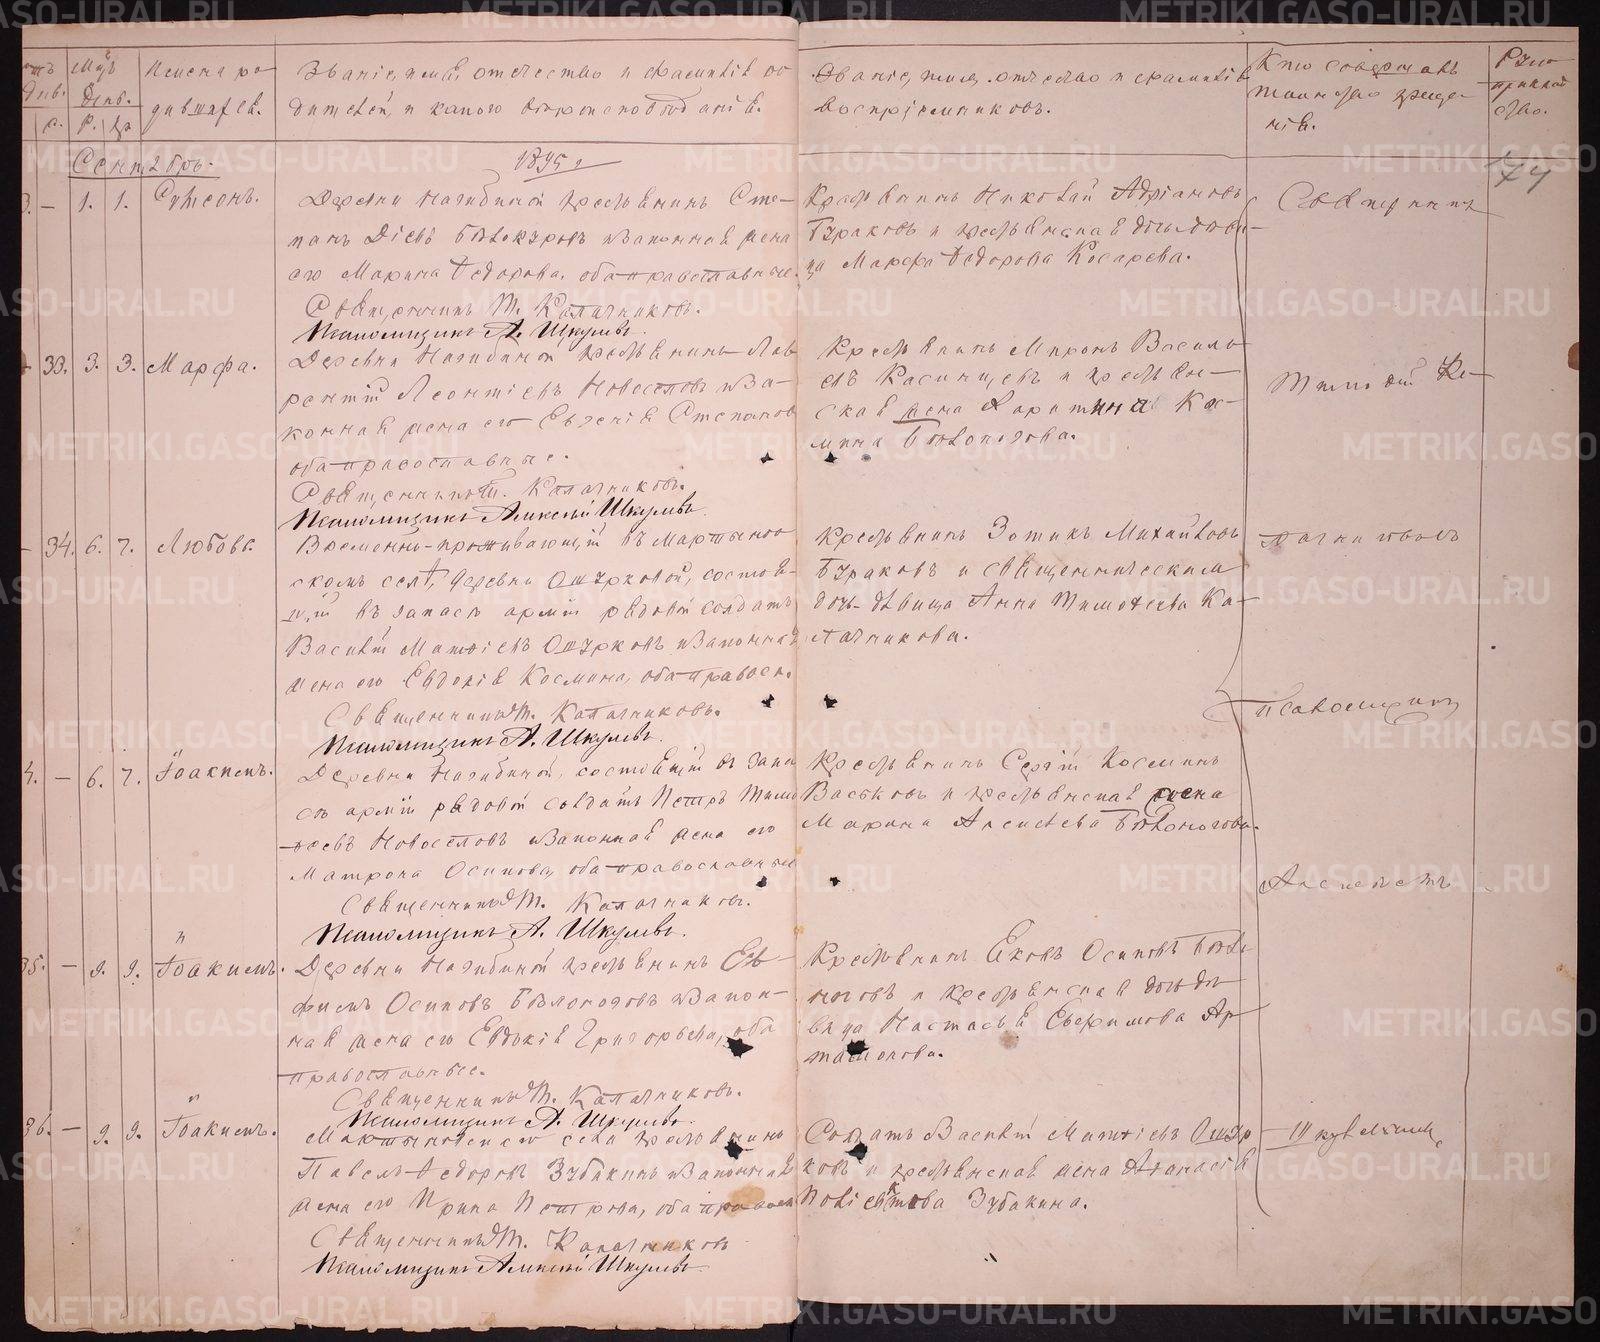 Мцъ
Имена ро
Званіе, имя, отчество и фамилія ро
Званіе, имя, отчество и фамилія
Кто совершалъ
Днв.
Днв.
дившихся.
дителей, и какого вѣроисповѣданія.
воспріемниковъ.
таинство креще
нія.
Сентябрь.
1895 г
174
1. 1. Сумеонъ.
Деревни Нагибиной крестьянинъ Сте-
панъ Діевъ Бѣлокуровъ и законная жена
его Марина Ѳедорова, оба православные.
Священникъ Т. Калачниковъ.
Псаломщикъ А. Шкулевъ.
Крестьянинъ Николай Адріановъ
Бураковъ и крестьянская дочь дѣви-
ца Марфа Ѳедорова Косарева.
Священникъ
33. 3. 3. Марфа.
Деревни Нагибиной крестьянинъ Лав
рентій Леонтіевъ Новоселовъ и за-
конная жена его Евгенія Степанов
оба православные.
Священникъ Т. Калачниковъ.
Псаломщикъ Алексѣй Шкулевъ.
Крестьянинъ Миронъ Василь
евъ Касинцевъ и крестьян-
ская жена Харитина Кос-
мина Бѣлоногова.
Тимоѳей Ка-
34. 6. 7. Любовь.
Временно-проживающій въ Мартынов
скомъ селѣ, деревни Ошурковой, состоя-
щій въ запасѣ арміи рядовой солдатъ
Василій Матѳіевъ Ошурковъ и законная
жена его Евдокія Космина, оба правосл.
Священникъ Т. Калачниковъ.
Псаломщикъ А. Шкулевъ.
Крестьянинъ Зотикъ Михайловъ
Бураковъ и священническая
дочь-дѣвица Анна Тимоѳеева Ка-
лачникова.
лачниковъ
псаломщикъ
4. - 6. 7. Іоакимъ.
Деревни Нагибиной, состоящій въ запа
сѣ арміи рядовой солдатъ Петръ Тимо
ѳеевъ Новоселовъ и законная жена его
Матрона Осипова, оба православные
Священникъ Т. Калачниковъ.
Псаломщикъ А. Шкулевъ.
Крестьянинъ Сергій Косминъ
Васьковъ и крестьянская жена
Марина Алексѣева Бѣлоногова.
Алексѣй
35. - 9. 9. Іоакимъ.
Деревни Нагибиной крестьянинъ Ев-
фимъ Осиповъ Бѣлоноговъ и закон-
ная жена его Евдокія Григорьева, оба
православные.
Священникъ Т. Калачниковъ.
Псаломщикъ А. Шкулевъ.
Крестьянинъ Яковъ Осиповъ Бѣло
ноговъ и крестьянская дочь дѣ
вица Настасья Евфимова Ар
тамонова.
36. - 9. 9. Іоакимъ.
Мартыновскаго села крестьянинъ
Павелъ Ѳедоровъ Зубакинъ и законная
жена его Ирина Петрова, оба правосл
Священникъ Т. Калачниковъ
Псаломщикъ Алексѣй Шкулевъ.
Солдатъ Василій Матѳіевъ Ошур
ковъ и крестьянская жена Аѳанасія
Зубакина.
METRIKI.GASO-URAL.RU